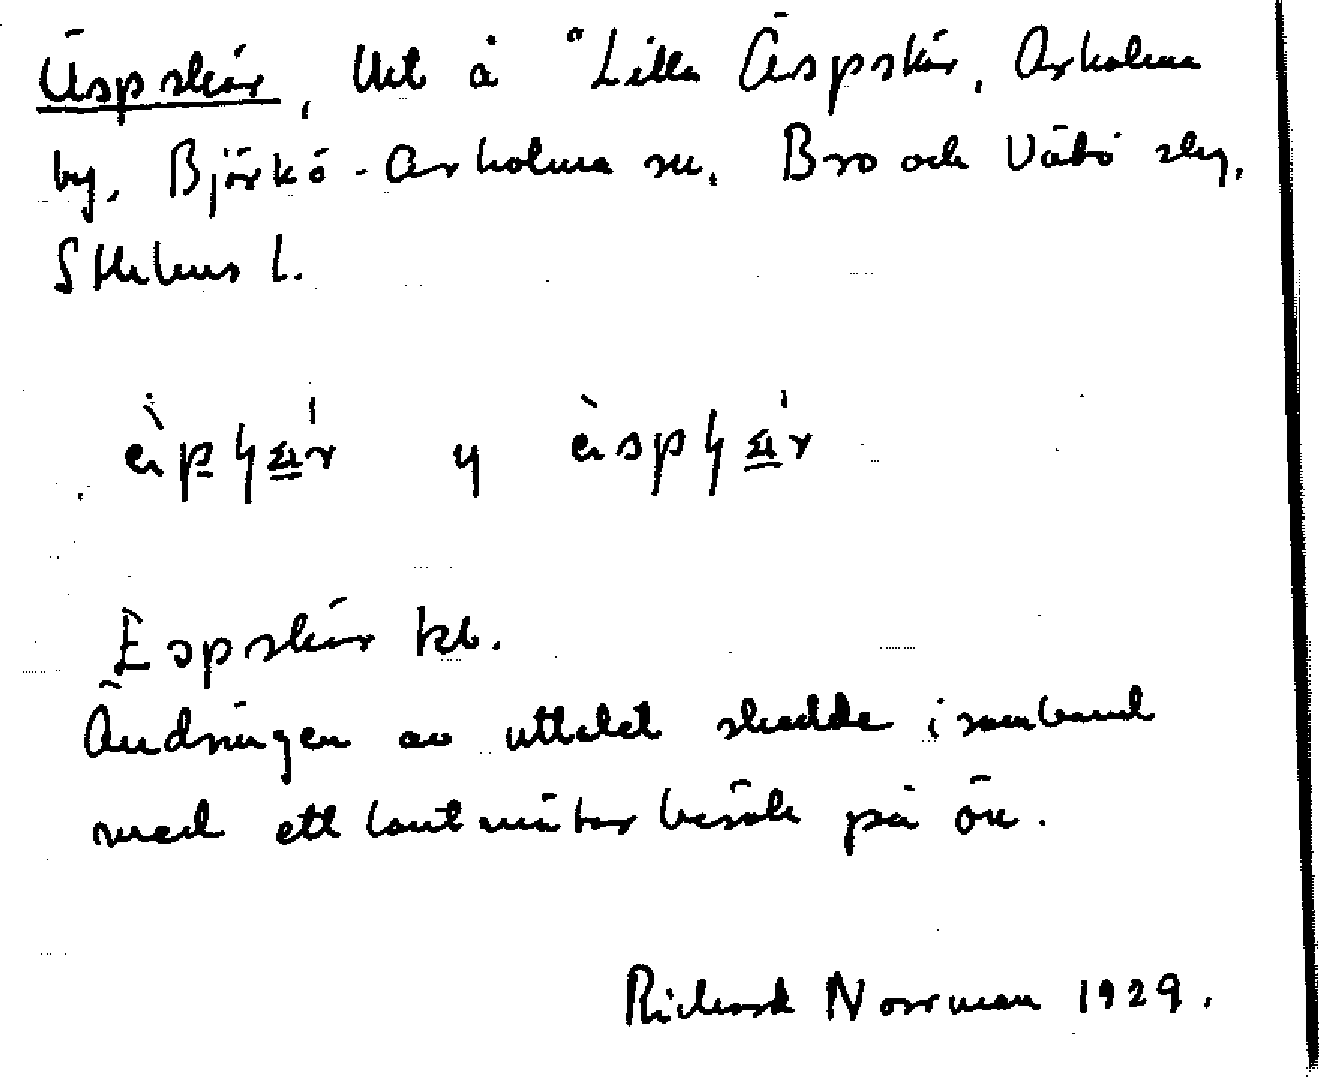 Äspskär, Utl å °Lilla Äspskär, Arholma
by, Björkö-Arholma sn. Bro och Vätö slg,
Sthlms l.
y
Espskär kb.
Ändringen av uttalet skedde i samband
med ett lantmätarbesök på ön.
Richard Norrman 1929.